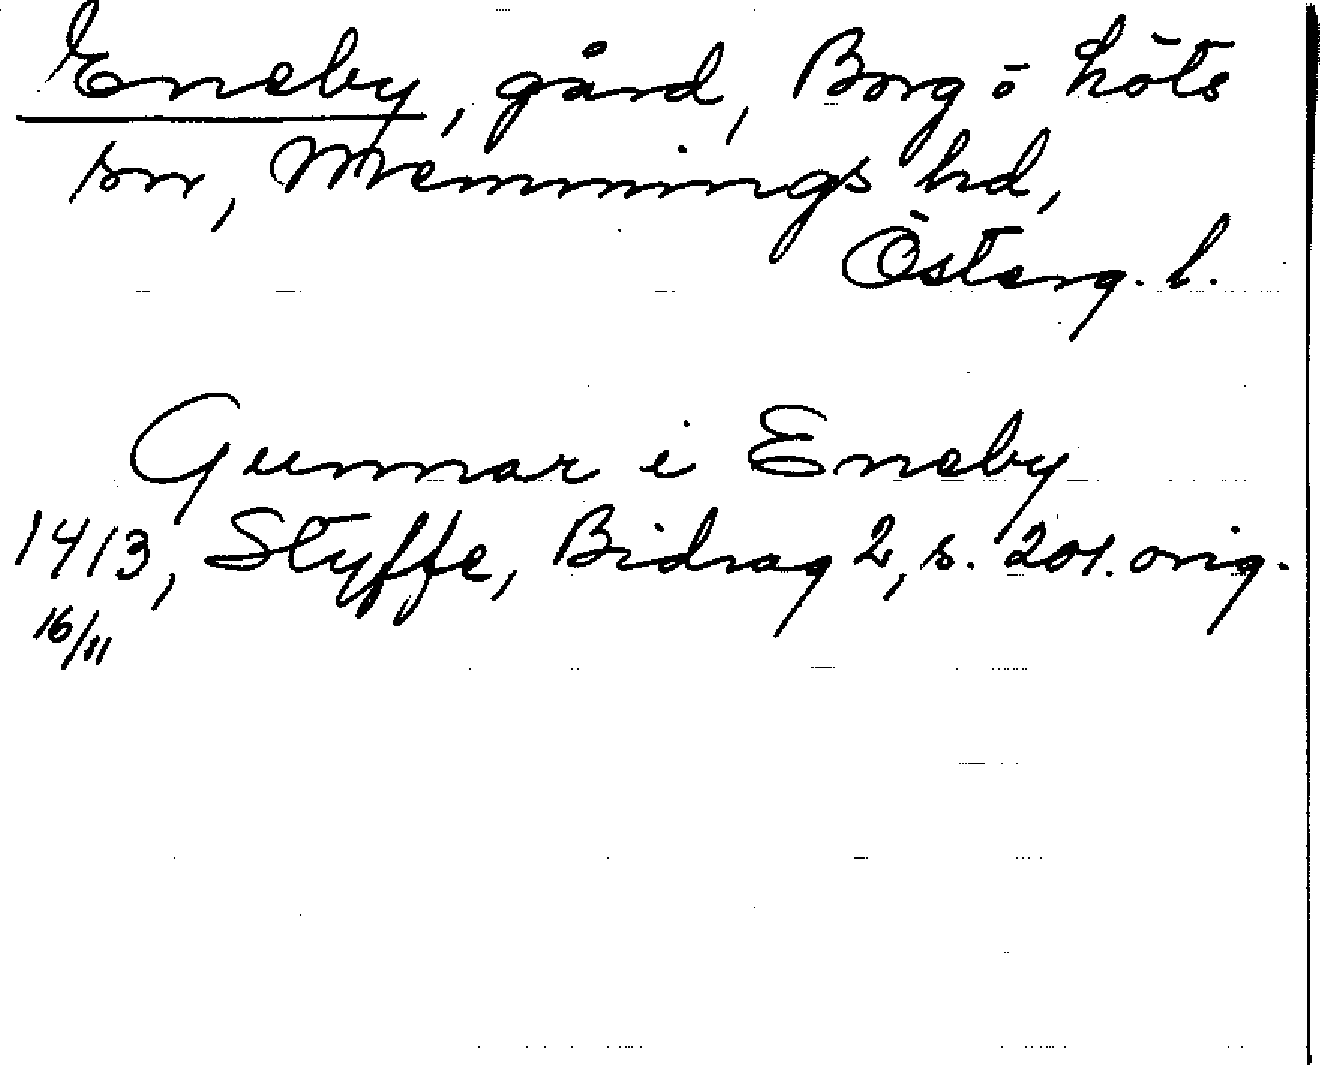 Eneby, gård, Borg o Löts
snr, Memmings hd,
Österg. l.
Gunnar i Eneby
1413, Styffe, Bidrag 2, s. 201. orig.
16/11